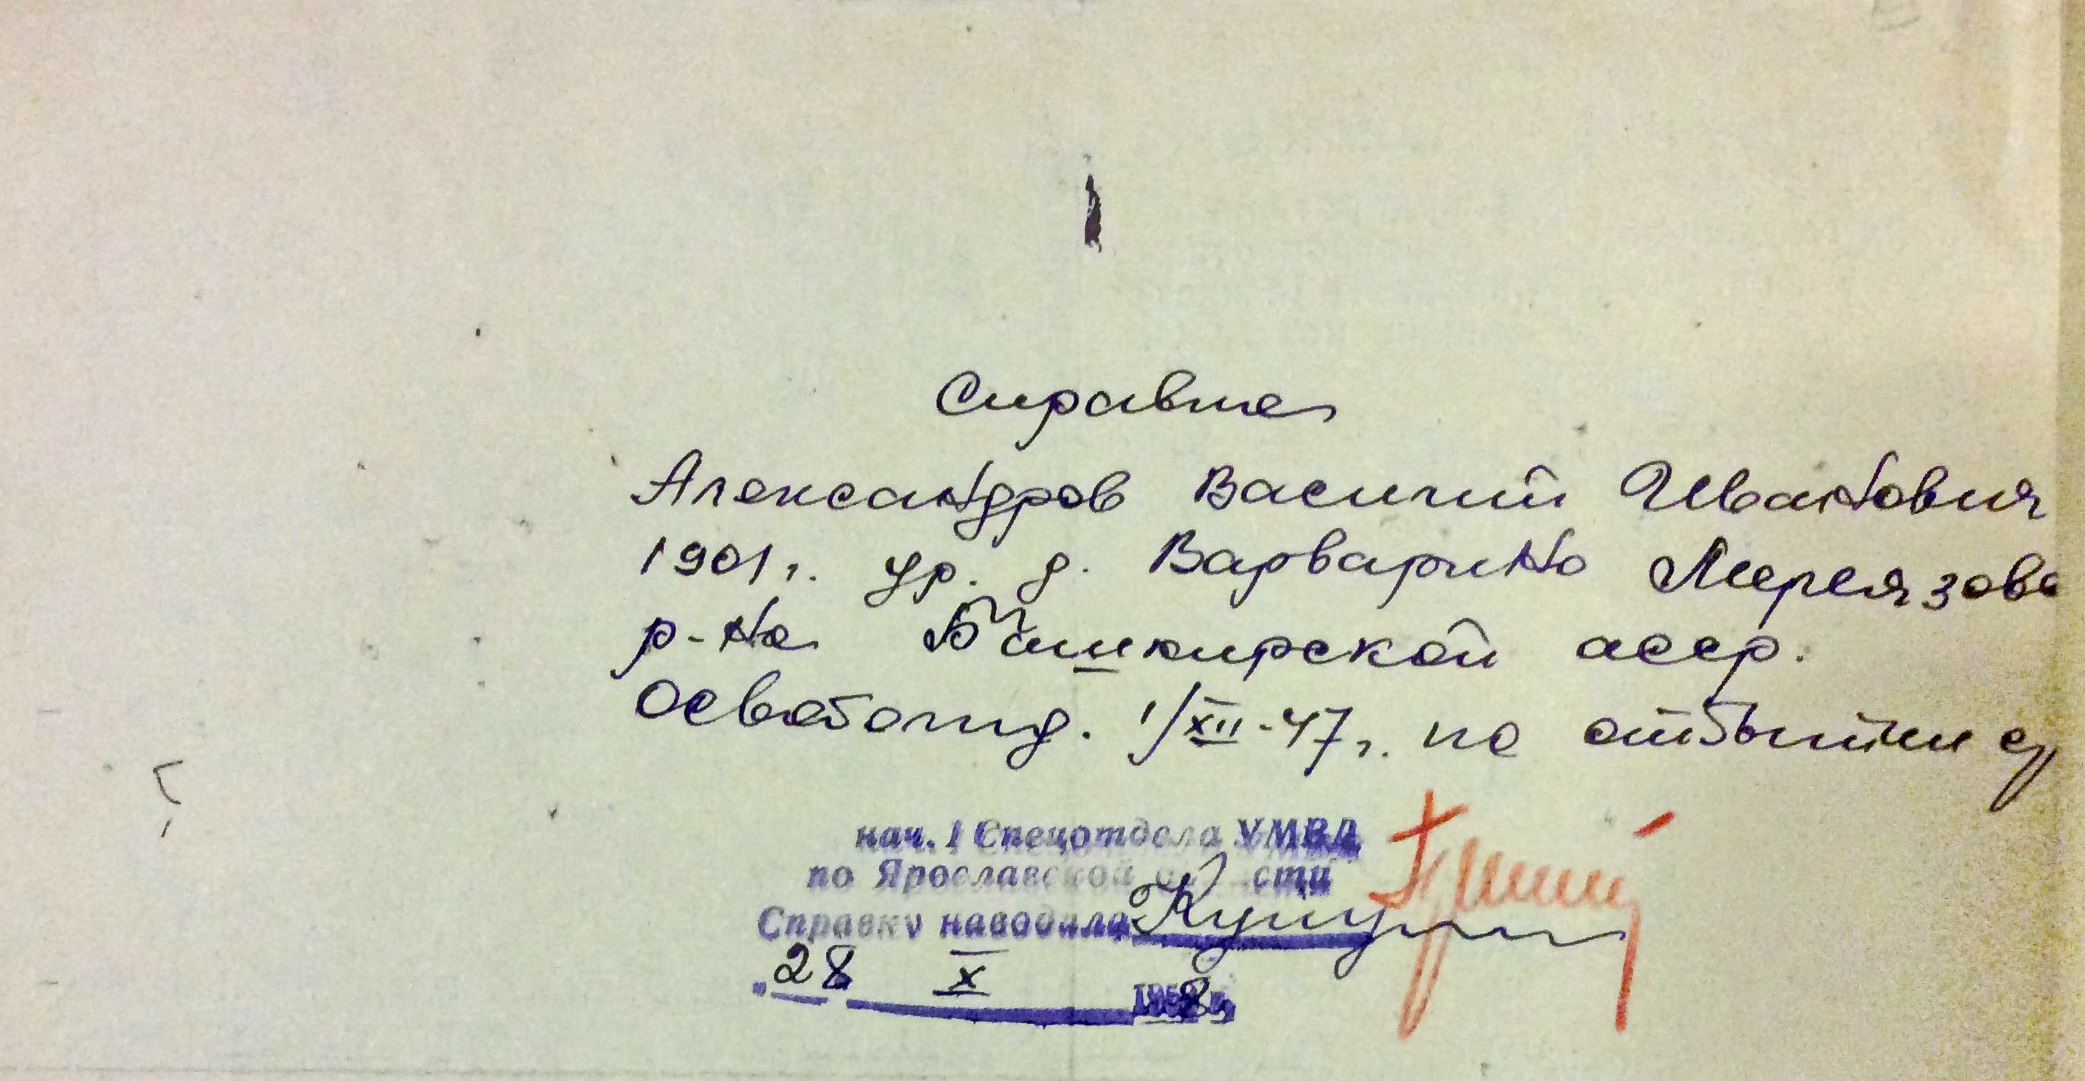 Справка
Александров Василий Иванович
1901 г. ур. д. Варварино
р-на Башкирской асср.
Освобожд. 1/XII-47 г. по отбытии
нач. 1 Спецотдела УМВД
по Ярославской области
Справку наводила
28 X